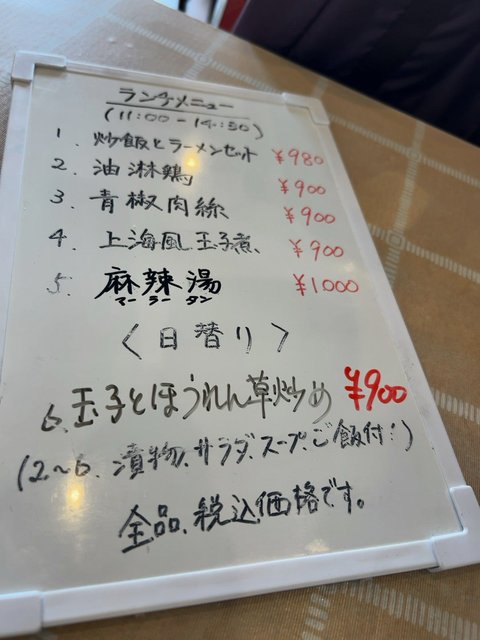 ランチメニュー
(11:00-14:30)
1. 炒飯とラーメンセット ¥980
2. 油淋鶏 ¥900
3. 青椒肉絲 ¥900
4. 上海風玉子煮 ¥900
5. 麻辣湯 ¥1000
マーラータン
〈日替り〉
6. 玉子とほうれん草炒め ¥900
(2~6、漬物、サラダ、スープ、ご飯付!)
全品、税込価格です。